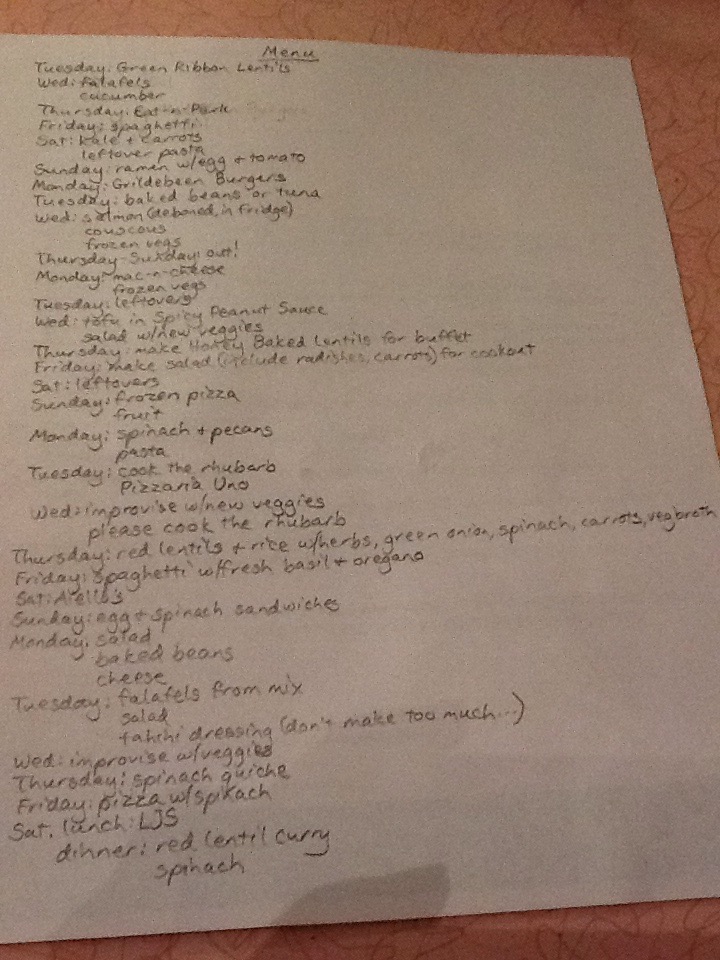 Menu
Tuesday: Green Ribbon Lentils
Wed: falafels
cucumber
Thursday: Eat-n-Park
Friday: spaghetti
Sat: kale + carrots
leftover pasta
Sunday: ramen w/egg + tomato
Monday: Grildebeen Burgers
Tuesday: baked beans or tuna
Wed: salmon (deboned, in fridge)
couscous
frozen vegs
Thursday-Sunday: out!
Monday: mac-n-cheese
frozen vegs
Tuesday: leftovers
Wed: tofu in Spicy Peanut Sauce
salad w/new veggies
Thursday: make Honey Baked Lentils for buffet
Friday: make salad (include radishes, carrots) for cookout
Sat: leftovers
Sunday: frozen pizza
fruit
Monday: spinach + pecans
pasta
Tuesday: cook the rhubarb
Pizzaria Uno
Wed: improvise w/new veggies
please cook the rhubarb
Thursday: red lentils + rice w/herbs, green onion, spinach, carrots, veg broth
Friday: spaghetti w/fresh basil + oregano
Sat: Aiello's
Sunday: egg + spinach sandwiches
Monday: salad
baked beans
cheese
Tuesday: falafels from mix
salad
tahihi dressing (don't make too much...)
Wed: improvise w/veggies
Thursday: spinach quiche
Friday: pizza w/spinach
Sat. lunch: LJS
dinner: red lentil curry
spinach